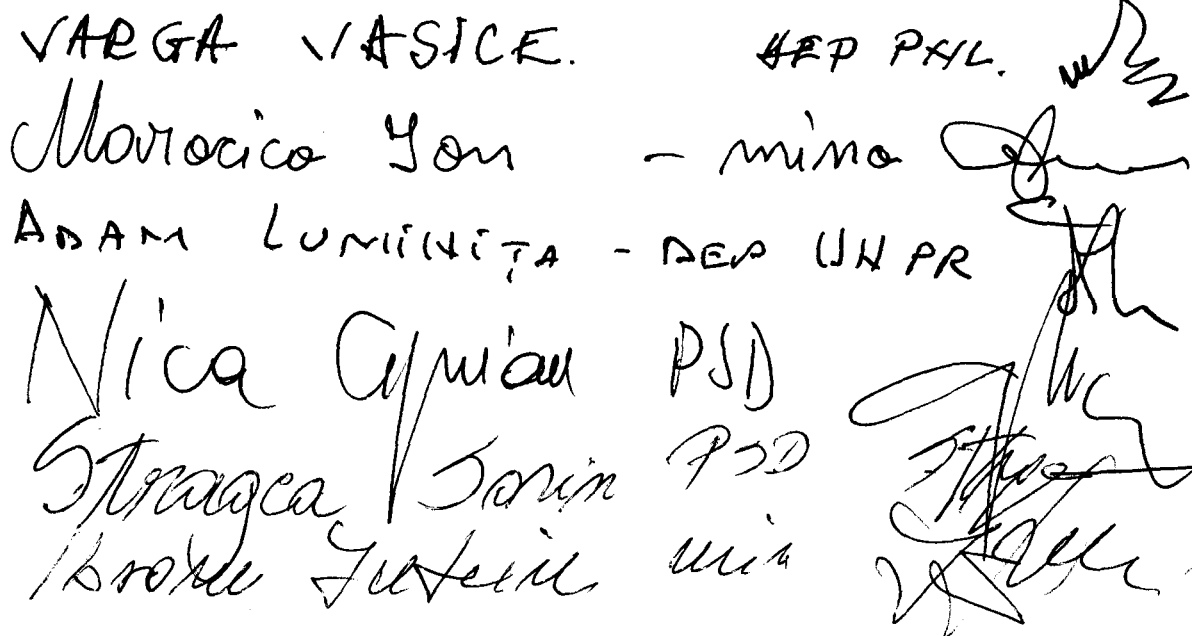 VARGA VASILE. DEP PNL.
Morocico Ion - mino
ADAM LUMINIȚA - DEP UNPR
Nica Ciprian PSD
Stragea Sorin PSD
min